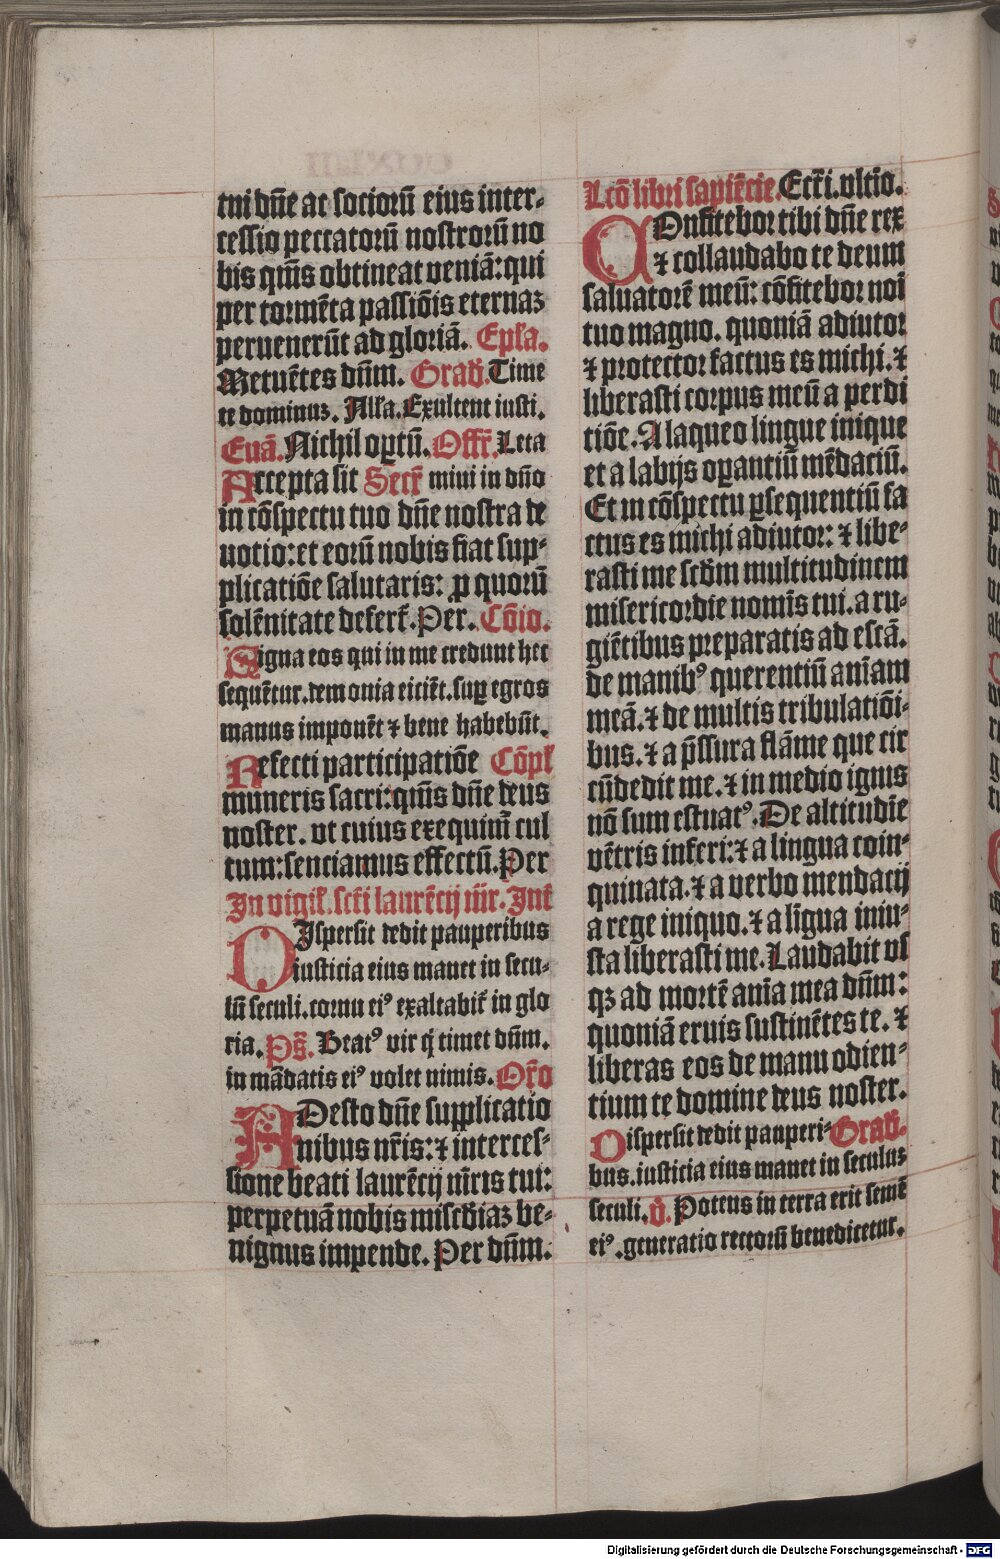 tui dn̄e ac socioꝝ̄ eius inter⸗
cessio peccatorū nostrorū no
bis qm̄s obtineat veniā: qui
per tormēta passiōis eternaꝫ
peruenerūt ad gloriā. Epl̄a.
Metuētes dn̄m. Grad̄. Time
te dominuꝫ. All̄a. Exultent iusti.
Euā. Nichil oꝑtū. Offr̄. Leta
Accepta sit Secr̄ mini in dn̄o
in cōspectu tuo dn̄e nostra de
uotio: et eorū nobis fiat sup⸗
plicatiōe salutaris: ꝓ quorū
solēnitate defert̄. Per. Cōio.
Signa eos qui in me credunt hec
sequētur. demonia eiciēt. suꝑ egros
manus imponēt ⁊ bene habebūt.
Refecti participatiōe Cōpl̄
muneris sacri: qm̄s dn̄e deus
noster. vt cuius exequim̄ cul
tum: senciamus effectū. Per
In vigil̄. sct̄i laurēcij mr̄. Int̄
DIspersit dedit pauperibus
iusticia eius manet in secu⸗
lū seculi. cornu eiꝰ exaltabit̄ in glo
ria. Ps̄. Beatꝰ vir q̄ timet dn̄m.
in mādatis eiꝰ volet nimis. Or̄o
ADesto dn̄e supplicatio
nibus nr̄is: ⁊ interces⸗
sione beati laurēcij mr̄is tui:
perpetuā nobis misc̄diaꝫ be⸗
nignus impende. Per dn̄m.
Lcō libri sapīēcie. Ecc̄i. vltīo.
COnfitebor tibi dn̄e rex
⁊ collaudabo te deum
saluatorē meū: cōfitebor noī
tuo magno. quoniā adiutor
⁊ protector factus es michi. ⁊
liberasti corpus meū a perdi
tiōe. A laqueo lingue inique
et a labijs oꝑantiū mēdaciū.
Et in cōspectu ꝑsequentiū fa
ctus es michi adiutor: ⁊ libe⸗
rasti me scd̄m multitudinem
misericordie nomīs tui. a ru⸗
giētibus preparatis ad escā.
de manibꝰ querentiū anīam
meā. ⁊ de multis tribulatiōi⸗
bus. ⁊ a p̄ssura flāme que cir
cūdedit me. ⁊ in medio ignis
nō sum estuatꝰ. De altitudīe
vētris inferi: ⁊ a lingua coin⸗
quinata. ⁊ a verbo mendacij
a rege iniquo. ⁊ a līgua iniu⸗
sta liberasti me. Laudabit vs
qꝫ ad mortē anīa mea dn̄m:
quoniā eruis sustinētes te. ⁊
liberas eos de manu odien⸗
tium te domine deus noster.
Dispersit dedit pauperi⸗ Grad̄.
bus. iusticia eius manet in seculuꝫ
seculi. v̄. Potens in terra erit semē
eiꝰ. generatio rectorū benedicetur.
Digitalisierung gefördert durch die Deutsche Forschungsgemeinschaft - DFG